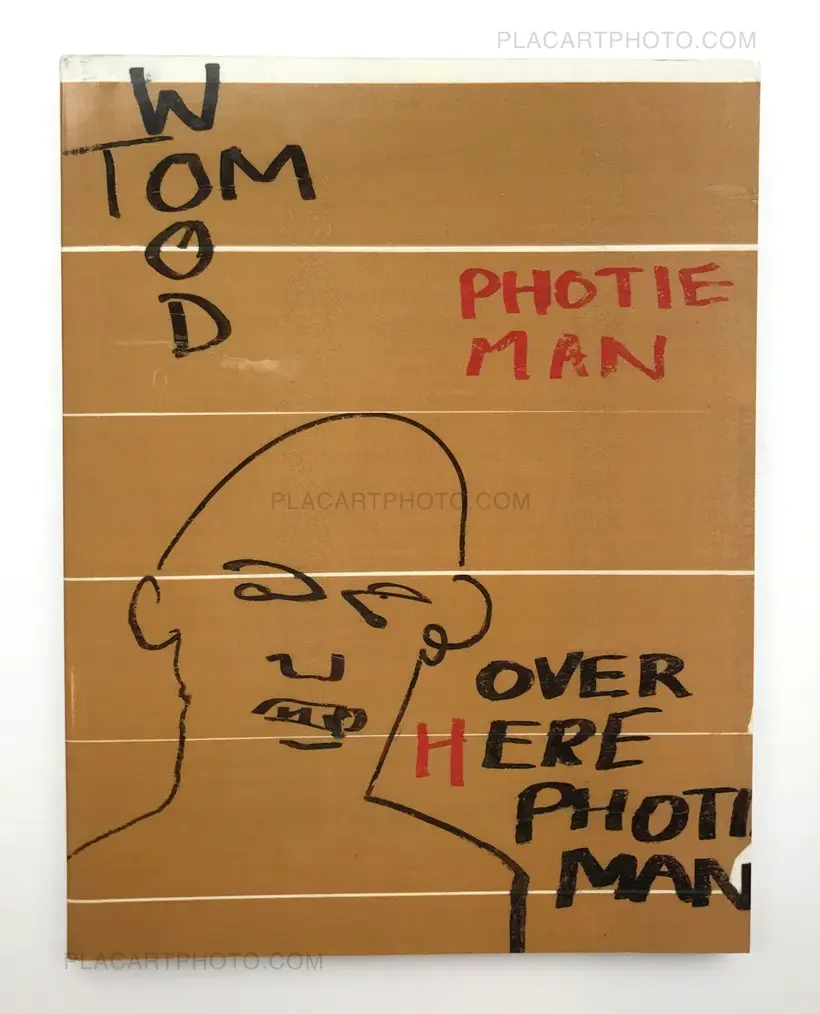 PLACARTPHOTO.COM
W
TOM
O
D
PHOTIE
MAN
PLACARTPHOTO.COM
OVER
HERE
PHOTI
MAN
PLACARTPHOTO.COM